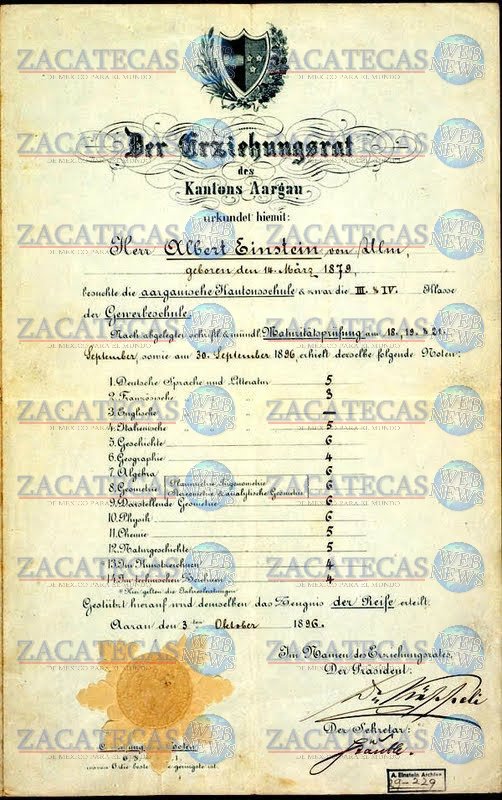 ZACATECAS WEB NEWS
DE MEXICO PARA EL MUNDO
Der Erziehungsrat
des
Kantons Aargau
urkundet hiemit:
Herr Albert Einstein von Ulm,
geboren den 14. März 1879,
besuchte die aargauische Kantonsschule & zwar die III. & IV. Klasse
der Gewerbeschule.
Nach abgelegter schriftl. & mündl. Maturitätsprüfung am 18., 19. & 21.
September, sowie am 30. September 1896, erhielt derselbe folgende Noten:
1. Deutsche Sprache und Litteratur 5
2. Französische " " 3
3. Englische " " —
4. Italienische " " 5
5. Geschichte 6
6. Geographie 4
7. Algebra 6
8. Geometrie (Planimetrie, Trigonometrie 6
Stereometrie & analytische Geometrie)
9. Darstellende Geometrie 6
10. Physik 6
11. Chemie 5
12. Naturgeschichte 5
13. Im Kunstzeichnen 4
14. Im technischen Zeichnen 4
* Hier gelten die Jahresleistungen.
Gestützt hierauf wird demselben das Zeugnis der Reife erteilt.
Aarau den 3ten Oktober 1896.
Im Namen des Erziehungsrates,
Der Präsident:
Der Sekretär:
6 / 5
wovon 6 die beste geringste ist.
A. Einstein Archive
29-229